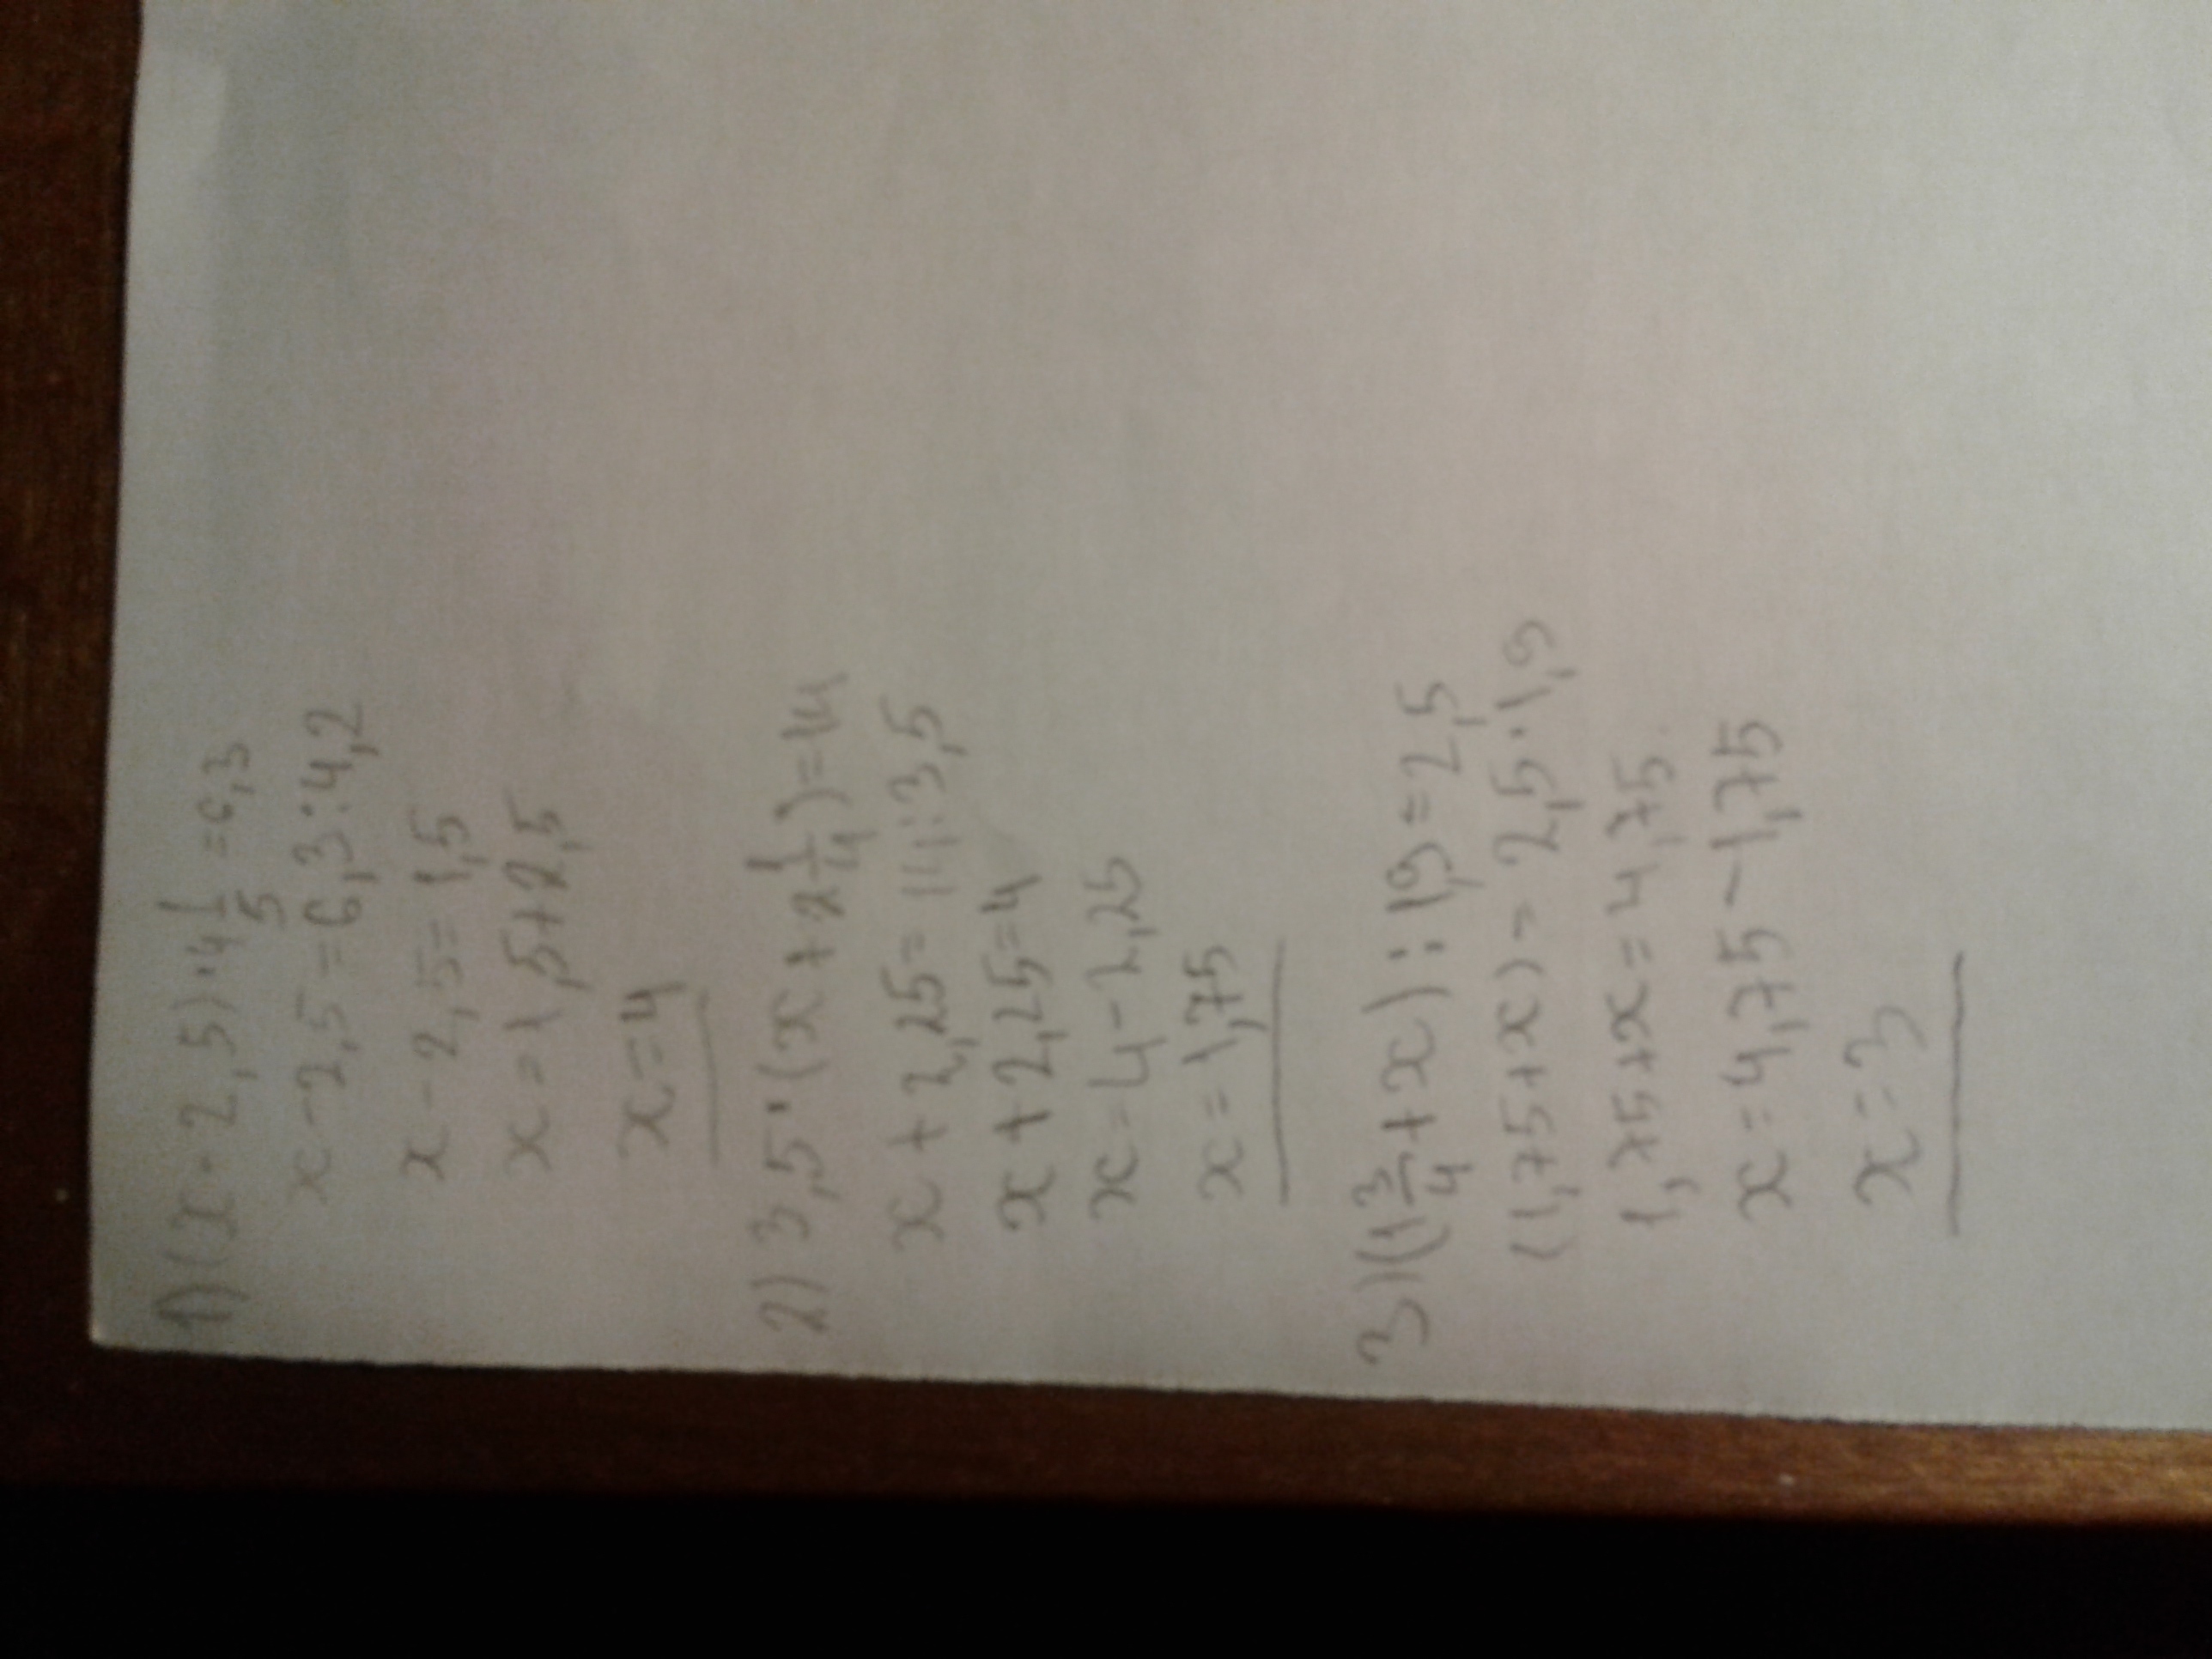 1) (x - 2,5) · 4 1/5 = 6,3
x - 2,5 = 6,3 : 4,2
x - 2,5 = 1,5
x = 1,5 + 2,5
x = 4
2) 3,5 · (x + 2 1/4) = 14
x + 2,25 = 14 : 3,5
x + 2,25 = 4
x = 4 - 2,25
x = 1,75
3) (1 3/4 + x) : 1,9 = 2,5
(1,75 + x) = 2,5 · 1,9
1,75 + x = 4,75
x = 4,75 - 1,75
x = 3